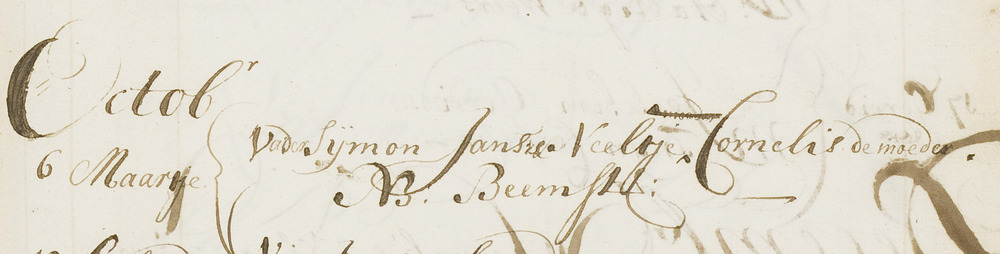 Octobr
Vader Sijmon Jansze Veeltje, Cornelis de moeder.
6 Maartje
NB. Beemst: